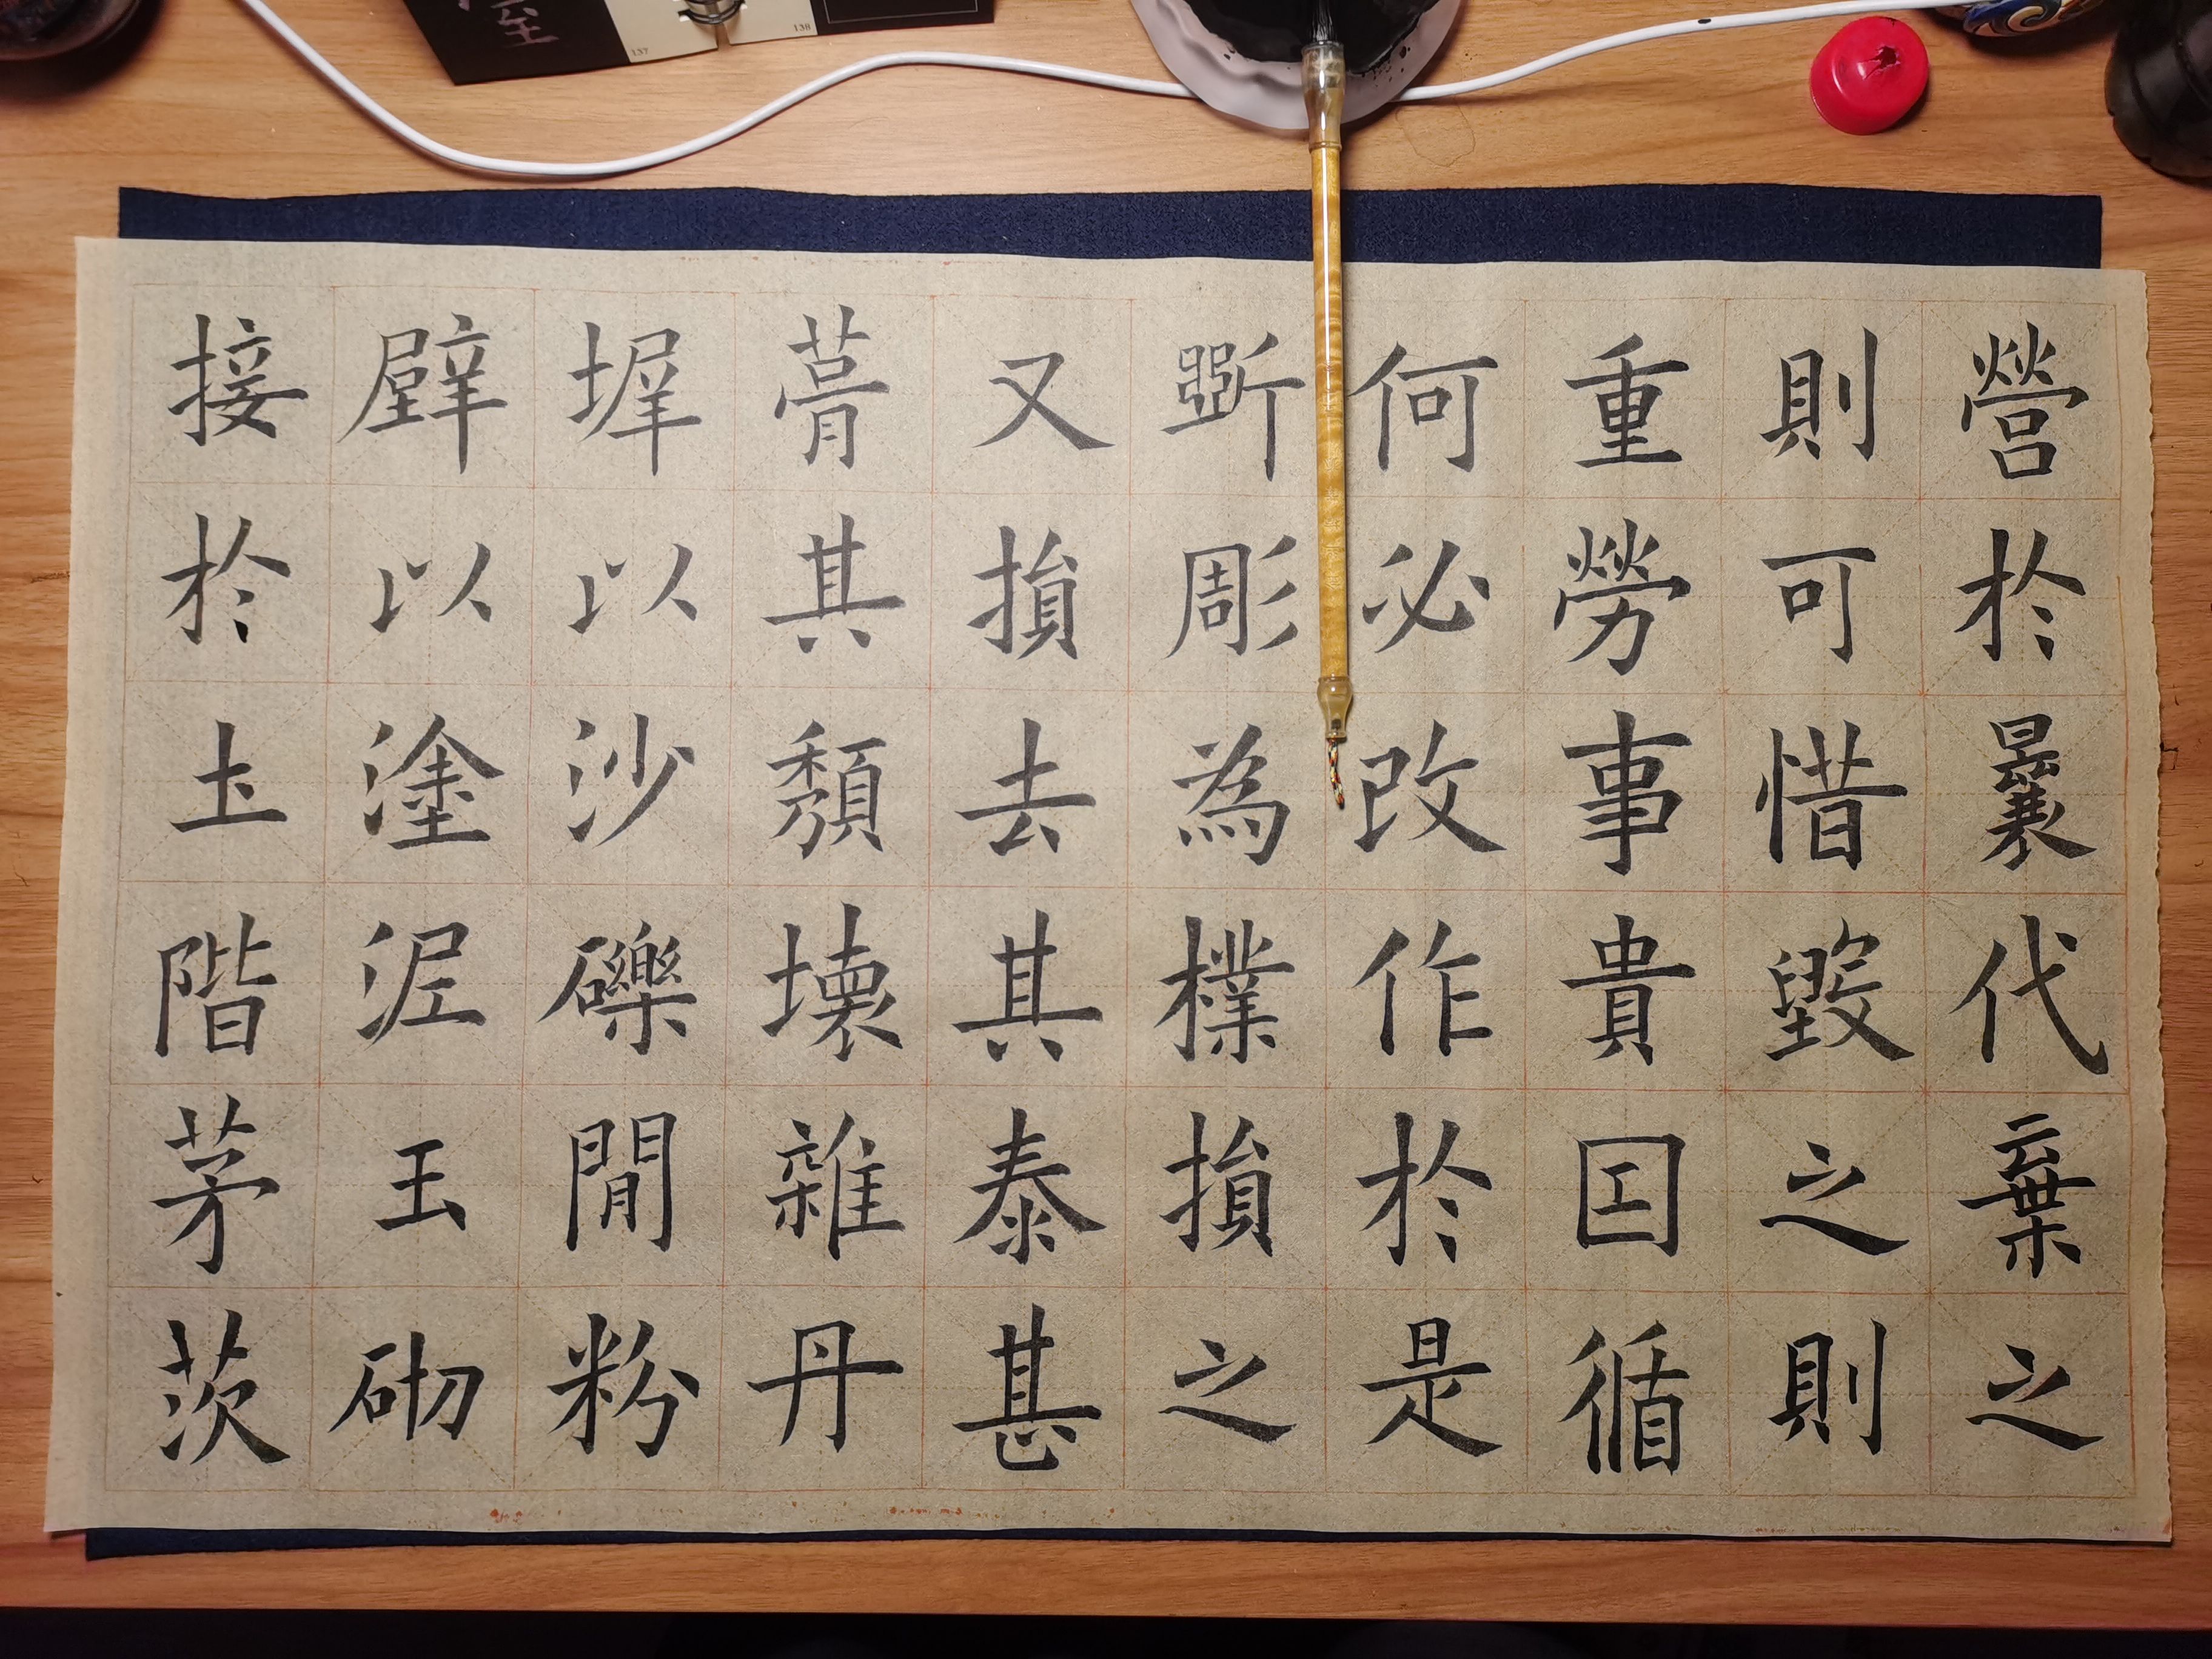 營於曩代棄之
則可惜毀之則
重勞事貴因循
何必改作於是
斲彫為樸損之
又損去其泰甚
葺其頹壞雜丹
墀以沙礫閒粉
壁以塗泥玉砌
接於土階茅茨
137
138